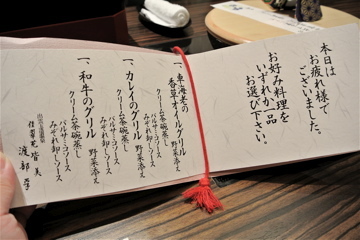 本日は
お疲れ様で
ございました。
お好み料理を
いずれか一品
お選び下さい。
一、車海老の
香草オイルグリル 野菜添え
クリーム茶碗蒸し
バルサミコソース
みぞれ卸しソース
一、カレイのグリル 野菜添え
クリーム茶碗蒸し
バルサミコソース
みぞれ卸しソース
一、和牛のグリル 野菜添え
クリーム茶碗蒸し
バルサミコソース
みぞれ卸しソース
渡部